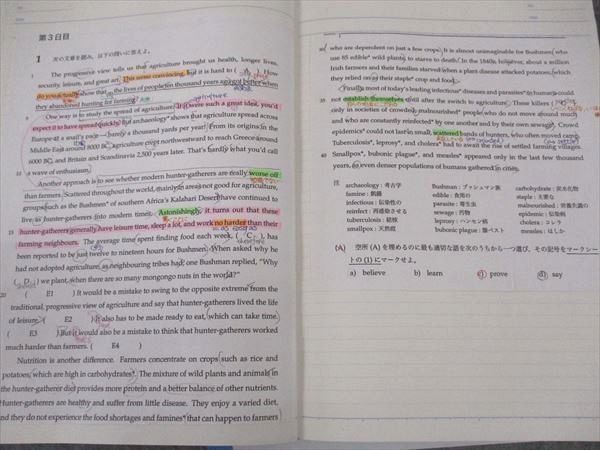 第3日目
1 次の文章を読み、以下の問いに答えよ。
The progressive view tells us that agriculture brought us health, longer lives,
security, leisure, and great art. This seems convincing, but it is hard to ( A ). How
do you actually show that the lives of people ten thousand years ago got better when
they abandoned hunting for farming?
One way is to study the spread of agriculture. If it were such a great idea, you'd
expect it to have spread quickly. But archaeology* shows that agriculture spread across
Europe at a snail's pace—barely a thousand yards per year! From its origins in the
Middle East around 8000 BC, agriculture crept northwestward to reach Greece around
6000 BC, and Britain and Scandinavia 2,500 years later. That's hardly what you'd call
a wave of enthusiasm.
Another approach is to see whether modern hunter-gatherers are really worse off
than farmers. Scattered throughout the world, mainly in areas not good for agriculture,
groups such as the Bushmen* of southern Africa's Kalahari Desert have continued to
live as hunter-gatherers into modern times. Astonishingly, it turns out that these
hunter-gatherers generally have leisure time, sleep a lot, and work no harder than their
farming neighbours. The average time spent finding food each week, ( C ), has
been reported to be just twelve to nineteen hours for Bushmen. When asked why he
had not adopted agriculture, as neighbouring tribes had, one Bushman replied, “Why
( D ) we plant, when there are so many mongongo nuts in the world?”
( E1 ) It would be a mistake to swing to the opposite extreme from the
traditional, progressive view of agriculture and say that hunter-gatherers lived the life
of leisure. ( E2 ) It also has to be made ready to eat, which can take time.
( E3 ) But it would also be a mistake to think that hunter-gatherers worked
much harder than farmers. ( E4 )
Nutrition is another difference. Farmers concentrate on crops such as rice and
potatoes, which are high in carbohydrates*. The mixture of wild plants and animals in
the hunter-gatherer diet provides more protein and a better balance of other nutrients.
Hunter-gatherers are healthy and suffer from little disease. They enjoy a varied diet,
and they do not experience the food shortages and famines* that can happen to farmers
who are dependent on just a few crops. It is almost unimaginable for Bushmen, who
use 85 edible* wild plants, to starve to death. In the 1840s, however, about a million
Irish farmers and their families starved when a plant disease attacked potatoes, which
they relied on as their staple* crop and food.
Finally, most of today's leading infectious* diseases and parasites* in humans could
not establish themselves until after the switch to agriculture. These killers
only in societies of crowded, malnourished* people who do not move around much
and who are constantly reinfected* by one another and by their own sewage*. Crowd
epidemics* could not last in small, scattered bands of hunters, who often moved camp.
Tuberculosis*, leprosy*, and cholera* had to await the rise of settled farming villages.
Smallpox*, bubonic plague*, and measles* appeared only in the last few thousand
years, as even denser populations of humans gathered in cities.
注
archaeology : 考古学 Bushman : ブッシュマン族 carbohydrate : 炭水化物
famine : 飢饉 edible : 食用の staple : 主要な
infectious : 伝染性の parasite : 寄生虫 malnourished : 栄養不良の
reinfect : 再感染させる sewage : 汚物 epidemic : 伝染病
tuberculosis : 結核 leprosy : ハンセン病 cholera : コレラ
smallpox : 天然痘 bubonic plague : 腺ペスト measles : はしか
(A) 空所 (A) を埋めるのに最も適切な語を次のうちから一つ選び、その記号をマークシー
トの (1) にマークせよ。
a) believe b) learn c) prove d) say